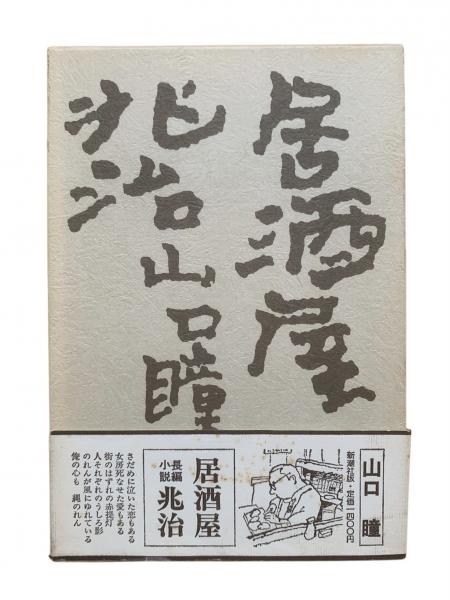 居酒屋
兆治山口瞳
山口 瞳
新潮社版・定価一四〇〇円
居酒屋
長編
小説
兆治
さだめに泣いた恋もある
女房死なせた愛もある
街のはずれの赤提灯
人それぞれのうしろ影
のれんが風にゆれている
俺の心も 縄のれん